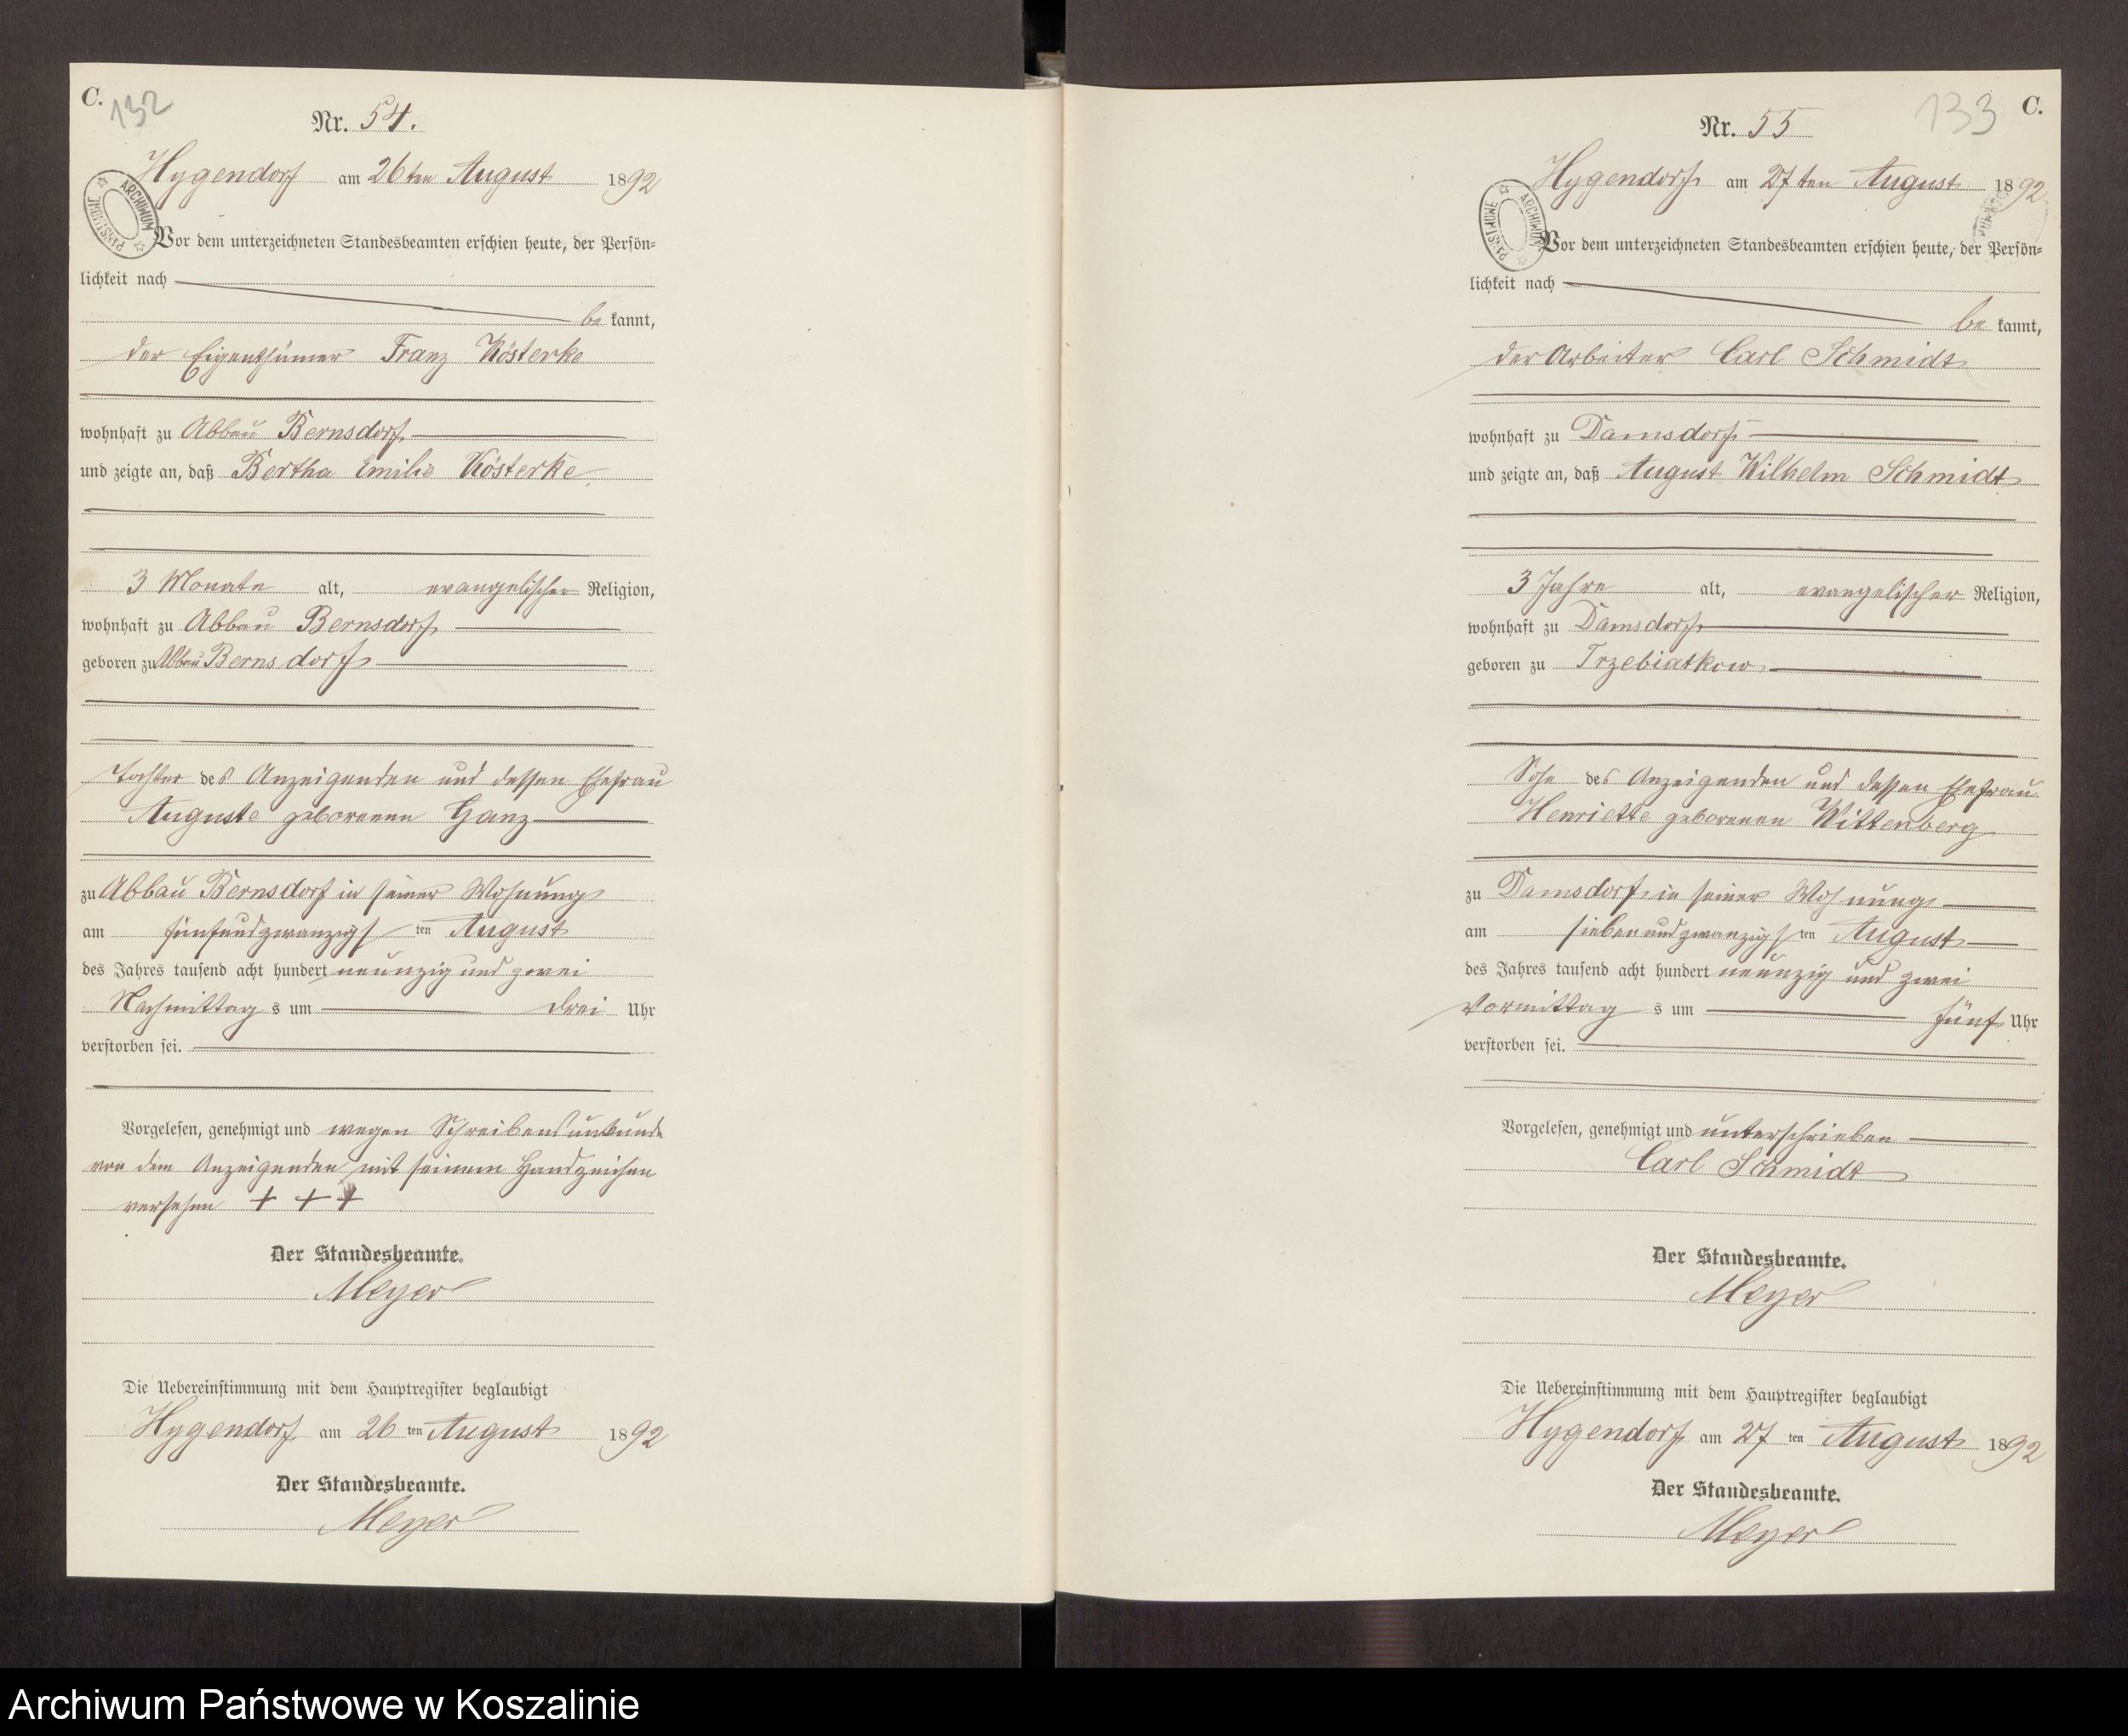 C.
132
Nr. 54.
Hygendorf am 26ten August 1892
ARCHIWUM PAŃSTWOWE
Vor dem unterzeichneten Standesbeamten erschien heute, der Persön=
lichkeit nach
be kannt,
der Eigenthümer Franz Kösterke
wohnhaft zu Abbau Bernsdorf
und zeigte an, daß Bertha Emilie Kösterke
3 Monate alt, evangelischer Religion,
wohnhaft zu Abbau Bernsdorf
geboren zu Abbau Bernsdorf
Tochter des Anzeigenden und dessen Ehefrau
Auguste geborenen Ganz
zu Abbau Bernsdorf in seiner Wohnung
am fünfundzwanzigs ten August
des Jahres tausend acht hundert neunzig und zwei
Nachmittag s um drei Uhr
verstorben sei.
Vorgelesen, genehmigt und wegen Schreibensunkunde
von dem Anzeigenden mit seinem Handzeichen
versehen + + +
Der Standesbeamte.
Meyer
Die Uebereinstimmung mit dem Hauptregister beglaubigt
Hygendorf am 26 ten August 1892
Der Standesbeamte.
Meyer
133
C.
Nr. 55
Hygendorf am 27ten August 1892
ARCHIWUM PAŃSTWOWE
Vor dem unterzeichneten Standesbeamten erschien heute, der Persön=
lichkeit nach
be kannt,
der Arbeiter Carl Schmidt
wohnhaft zu Damsdorf
und zeigte an, daß August Wilhelm Schmidt
3 Jahre alt, evangelischer Religion,
wohnhaft zu Damsdorf
geboren zu Trzebiatkow
Sohn des Anzeigenden und dessen Ehefrau
Henriette geborenen Wittenberg
zu Damsdorf in seiner Wohnung
am siebenundzwanzigs ten August
des Jahres tausend acht hundert neunzig und zwei
Vormittag s um fünf Uhr
verstorben sei.
Vorgelesen, genehmigt und unterschrieben
Carl Schmidt
Der Standesbeamte.
Meyer
Die Uebereinstimmung mit dem Hauptregister beglaubigt
Hygendorf am 27 ten August 1892
Der Standesbeamte.
Meyer
Archiwum Państwowe w Koszalinie